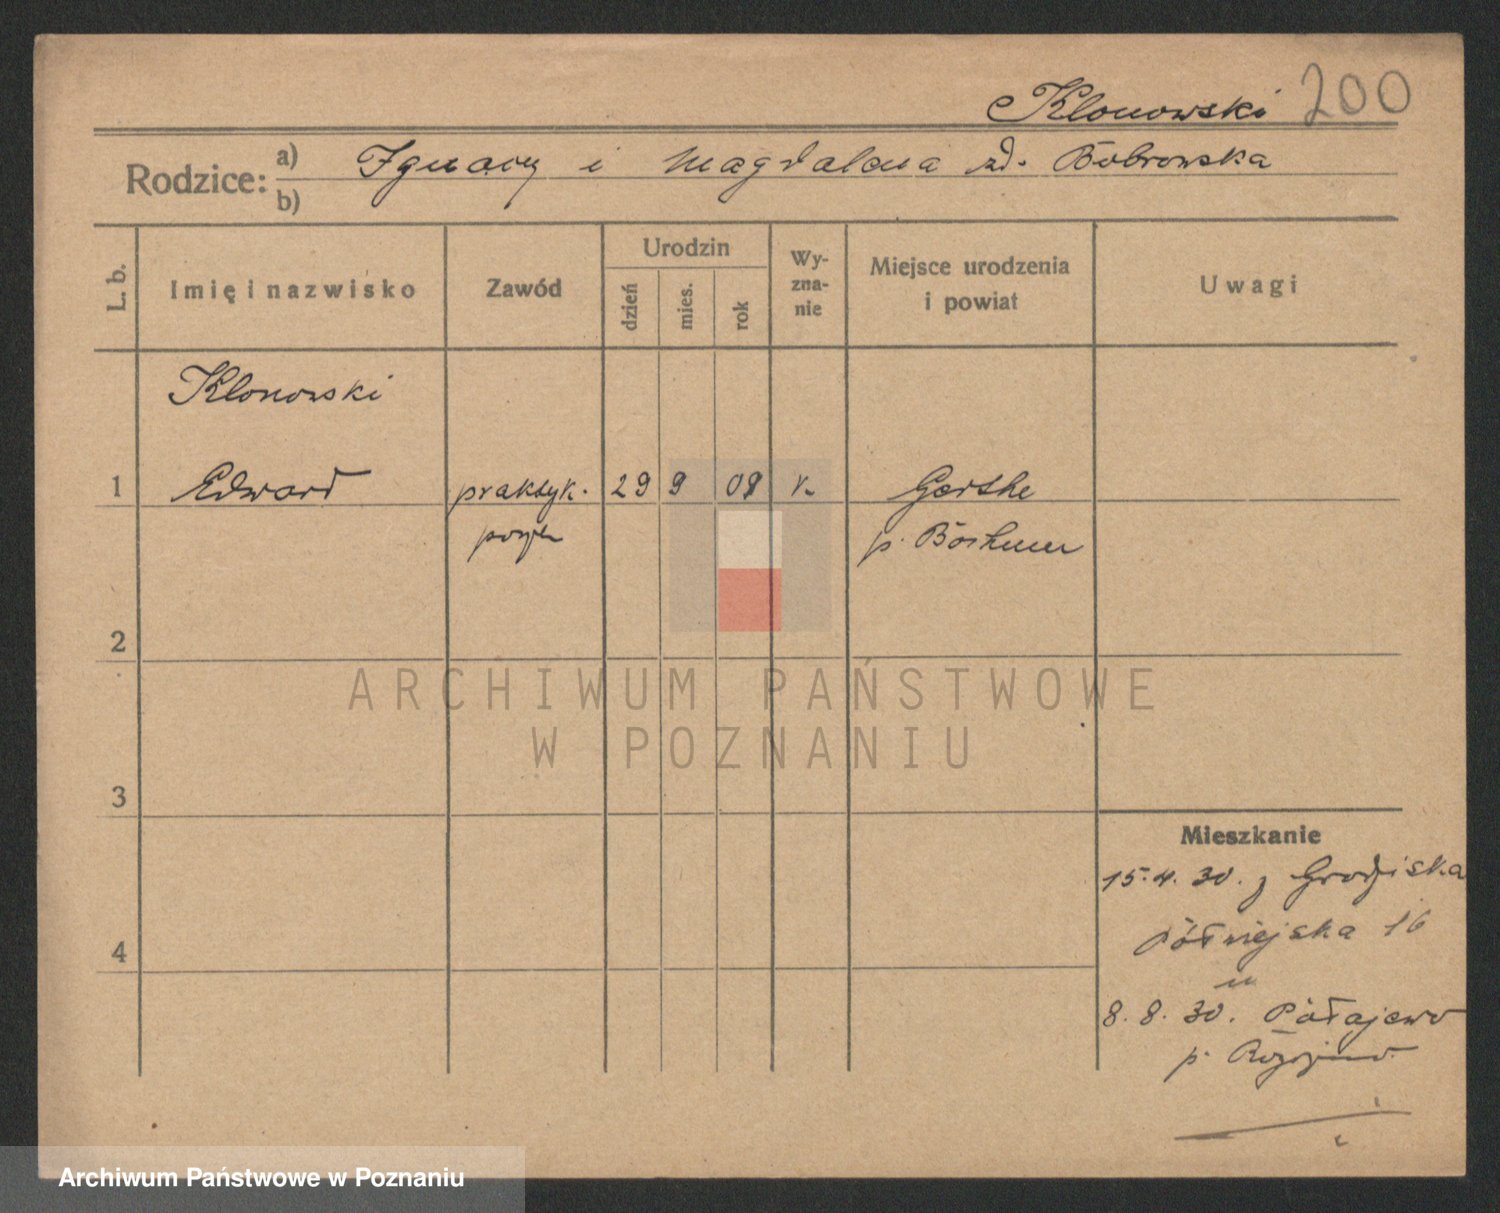 Klonowski 200
Rodzice: a) Ignacy i Magdalena zd. Bobrowska
b)
L. b.
Imię i nazwisko
Zawód
Urodzin
dzień
mies.
rok
Wy-
zna-
nie
Miejsce urodzenia
i powiat
Uwagi
Klonowski
1 Edward praktyk. 29 9 08 k. Gerthe
p.
2
ARCHIWUM PAŃSTWOWE
W POZNANIU
3
Mieszkanie
15.4.30. z Grodziska
4
Półwiejska 16
8.8.30. Połajewo
p.
Archiwum Państwowe w Poznaniu